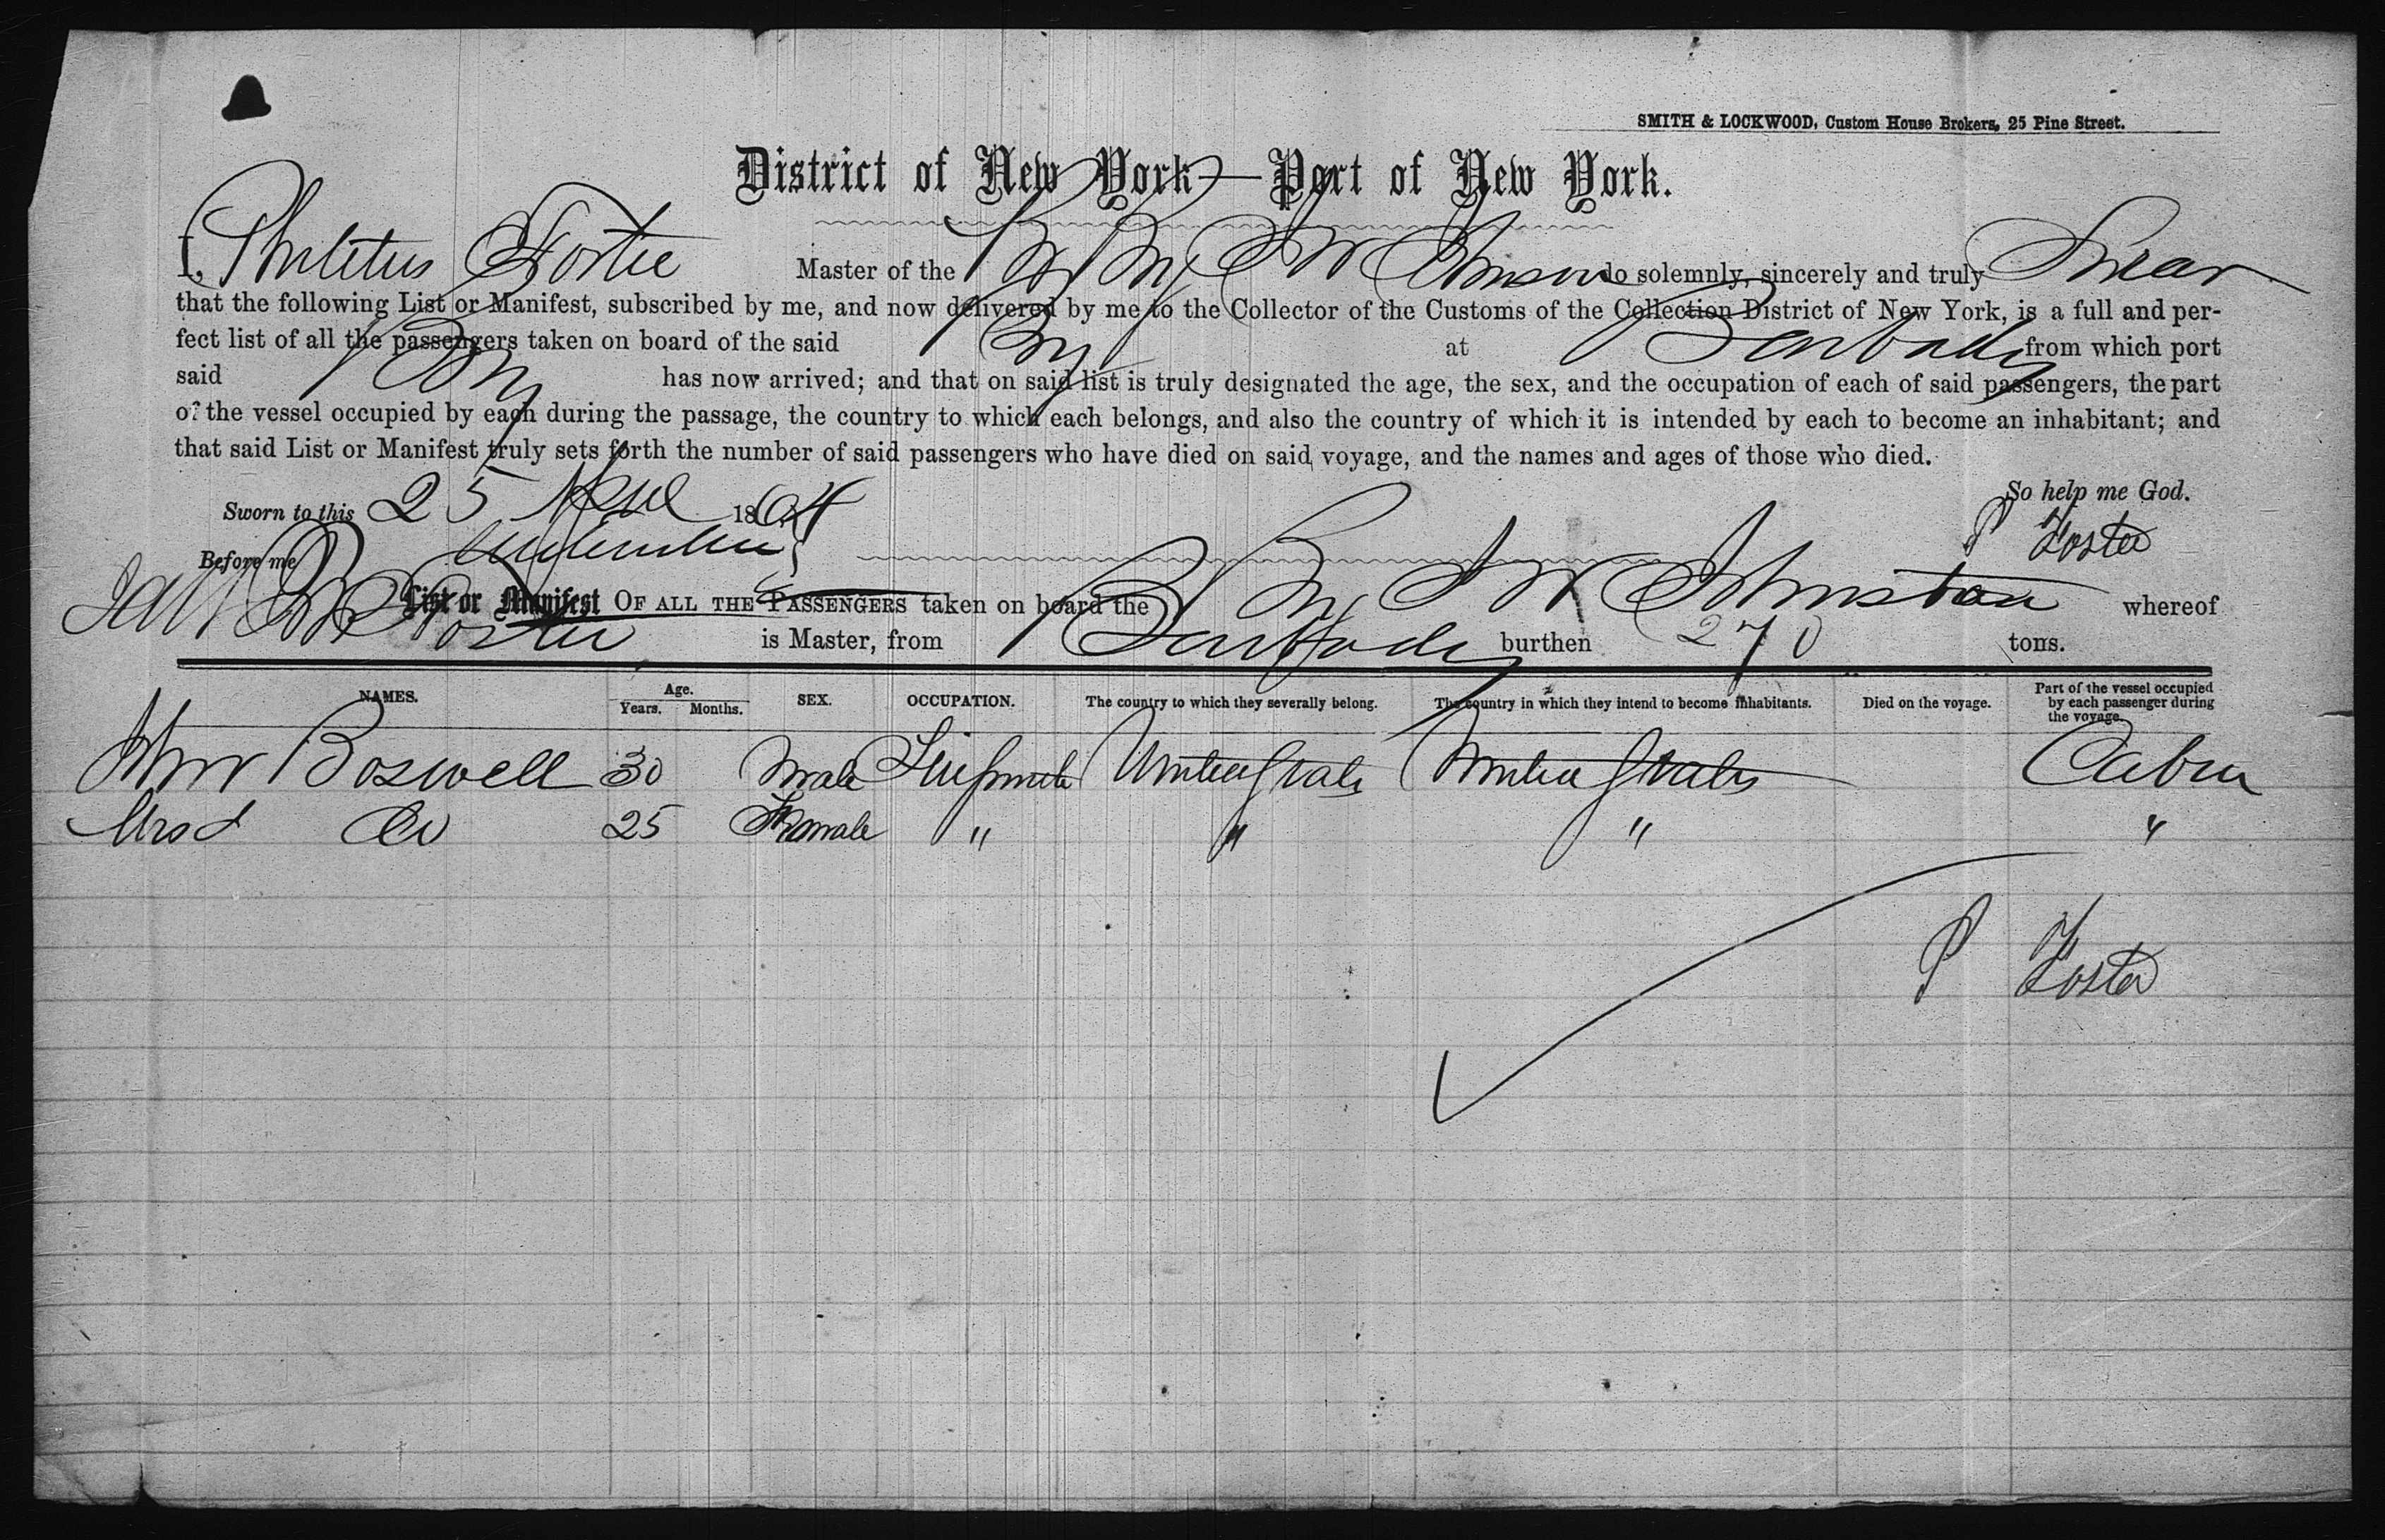 SMITH & LOCKWOOD, Custom House Brokers, 25 Pine Street.
District of New York—Port of New York.
I, Philetus Foster Master of the Br Brig J W Johnson do solemnly, sincerely and truly Swear
that the following List or Manifest, subscribed by me, and now delivered by me to the Collector of the Customs of the Collection District of New York, is a full and per-
fect list of all the passengers taken on board of the said Brig at Barbados from which port
said Brig has now arrived; and that on said list is truly designated the age, the sex, and the occupation of each of said passengers, the part
of the vessel occupied by each during the passage, the country to which each belongs, and also the country of which it is intended by each to become an inhabitant; and
that said List or Manifest truly sets forth the number of said passengers who have died on said voyage, and the names and ages of those who died.
So help me God.
Sworn to this 25 April 1864
P Foster
Before me
List or Manifest OF ALL THE PASSENGERS taken on board the Br Brig J W Johnston whereof
P Foster is Master, from Barbados burthen 270 tons.
NAMES. Age. Years. Months. SEX. OCCUPATION. The country to which they severally belong. The country in which they intend to become inhabitants. Died on the voyage. Part of the vessel occupied by each passenger during the voyage.
John Boswell 30 Male United States United States Cabin
Mrs Do 25 Female " " " "
P Foster